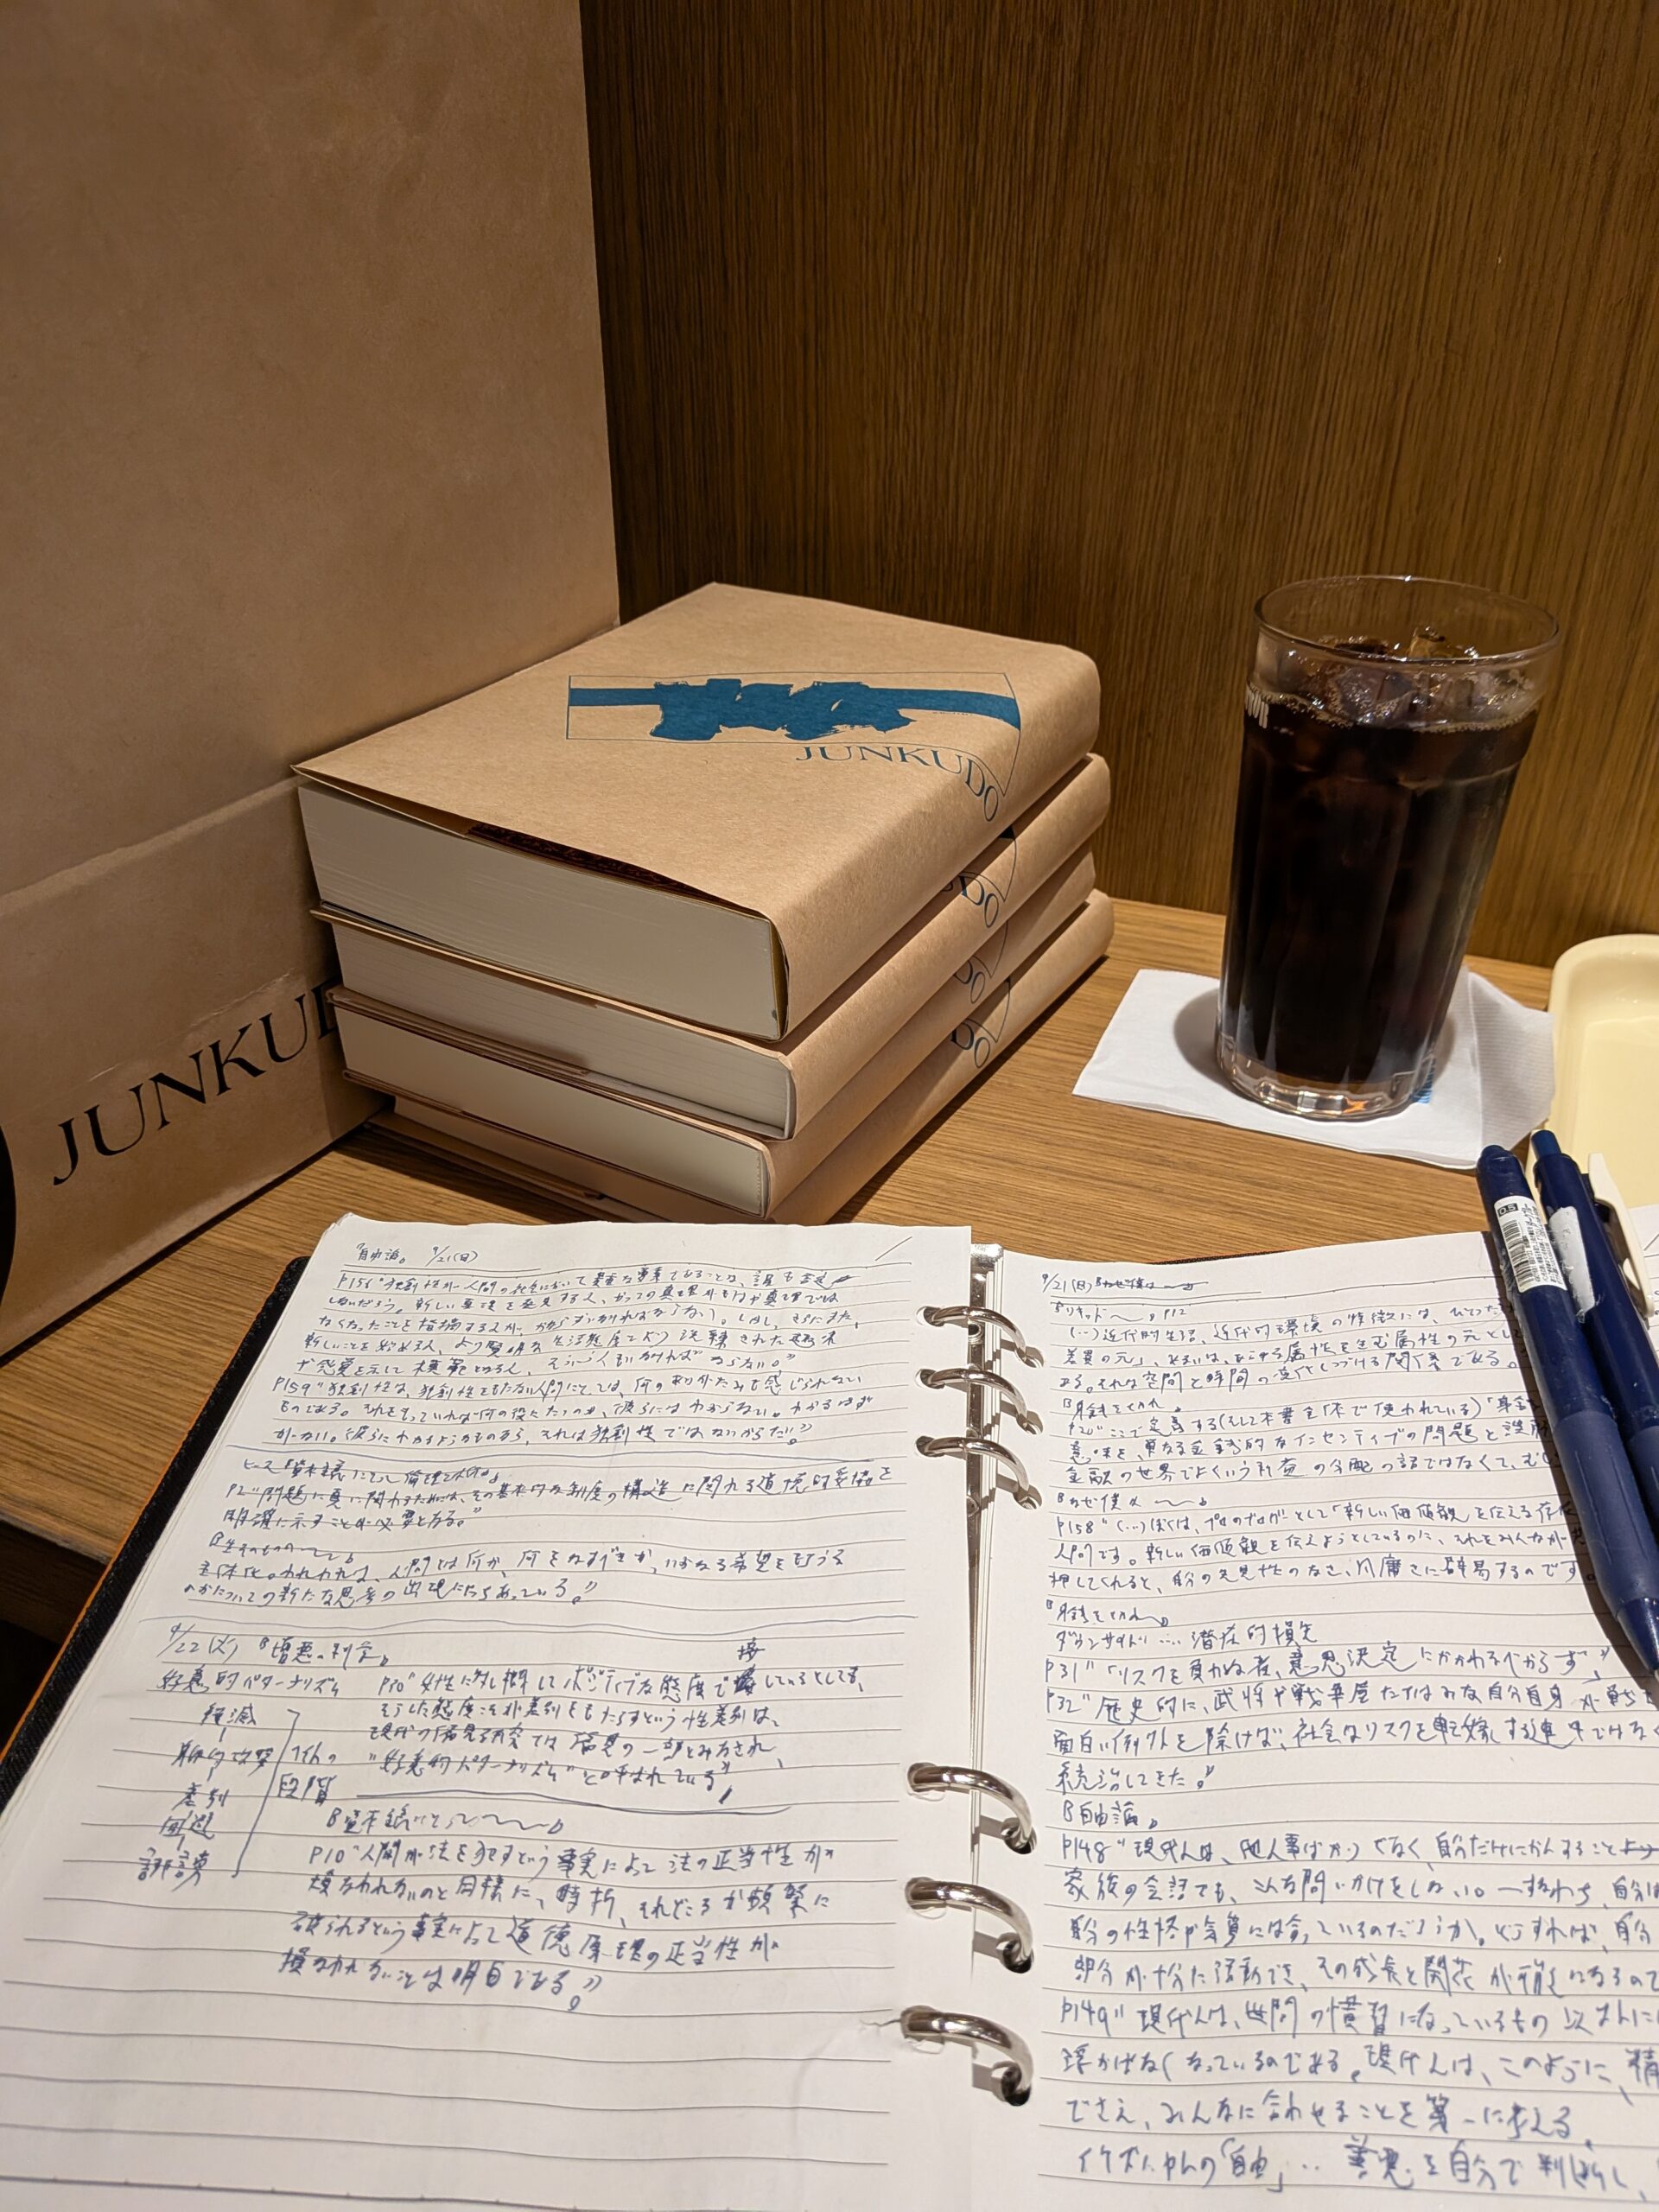 JUNKUDO
JUNKUDO
『自由論』 9/21(日)
P156"独創性が人間の社会において貴重な要素であることは、誰も否定
しないだろう。新しい真理を発見する人、かつての真理がもはや真理では
なくなったことを指摘する人が、かならずいなければならない。しかし、さらにまた、
新しいことを始める人、より賢明な生活態度とより洗練された趣味
や感覚を示して模範となる人、そういう人もいなければならない。"
P159"独創性は、独創性をもたない人間にとっては、何のありがたみも感じられない
ものである。それをもっていれば何の役にたつのか、彼らにはわからない。わかるはず
がない。彼らにわかるようなものなら、それは独創性ではないからだ。"
ヒース『資本主義にとって倫理とは何か』
P2"問題に真に関わるためには、その基本的な制度の構造に関わる道徳的妥協を
明確に示すことが必要となる。"
『生そのものの〜』
主体化。われわれは、人間とは何か、何をなすべきか、いかなる希望をもちうる
のかについての新たな思考の出現に立ちあっている。"
9/22(火)『憎悪の科学』
好意的パターナリズム P10"女性に対し概してポジティブな態度で接しているとしても、
接
そうした態度こそが差別をもたらすという性差別は、
現代の偏見研究では偏見の一部とみなされ、
"好意的パターナリズム"と呼ばれている"
殲滅
身体的攻撃
差別
回避
誹謗
1つ1つの
段階
『資本主義にとって〜』
P10"人間が法を犯すという事実によって法の正当性が
損なわれないのと同様に、時折、それどころか頻繁に
破られるという事実によって道徳原理の正当性が
損なわれないことは明白である。"
9/21(日)『なぜ僕は〜』
P12
(…)近代的生活、近代的環境の特徴には、ひとつ
差異の元」、あるいは、あらゆる属性を生む属性の元とし
ある。それは空間と時間の変化しつづける関係である。
『身銭を切れ』
P20"ここで定義する(そして本書全体で使われている)「身銭
意味を、単なる金銭的なインセンティブの問題と誤解
金融の世界でよくいう利益の分配の話ではなくて、むし
『なぜ僕は〜』
P158"(…)ぼくは、プロのブロガーとして「新しい価値観を伝える存在
人間です。新しい価値観を伝えようとしているのに、それをみんなが
押してくれると、自分の先見性のなさ、凡庸さに辟易するのです。
『身銭を切れ』
ダウンサイド…潜在的損失
P31"「リスクを負わぬ者、意思決定にかかわるべからず」"
P32"歴史的に、武将や戦争屋たちはみな自分自身が戦
面白い例外を除けば、社会はリスクを転嫁する連中ではなく
統治してきた。"
『自由論』
P148"現代人は、他人事ばかりでなく、自分だけにかんすること
家族の会話でも、こんな問いかけをしない。―すなわち、自分は
自分の性格や気質には合っているのだろうか。どうすれば、自分
部分が十分に活動でき、その成長と開花が可能になるので
P149"現代人は、世間の慣習になっているもの以外に
浮かばなくなっているのである。現代人は、このように、精
でさえ、みんなに合わせることを第一に考える。
イケズにゃんの「自由」…善悪を自分で判断し、